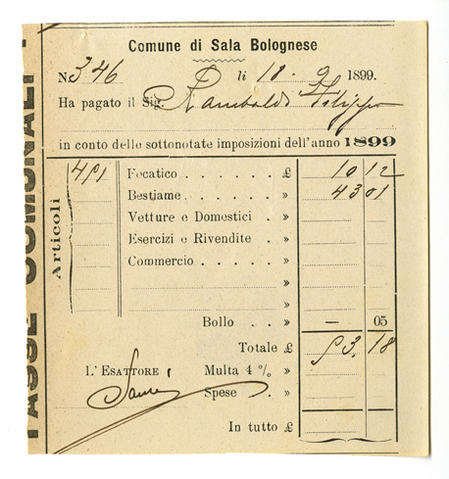 TASSE COMUNALI
Comune di Sala Bolognese
N. 346 li 18 . 9 1899.
Ha pagato il Sig. Ramboldi Filippo
in conto delle sottonotate imposizioni dell'anno 1899
Articoli
491 Focatico . . . . . . £ 10 12
Bestiame . . . . . . » 43 01
Vetture e Domestici . »
Esercizi e Rivendite . »
Commercio . . . . . »
»
»
Bollo . . » — 05
Totale £ 53.18
L'Esattore Multa 4 % »
Spese . »
In tutto £